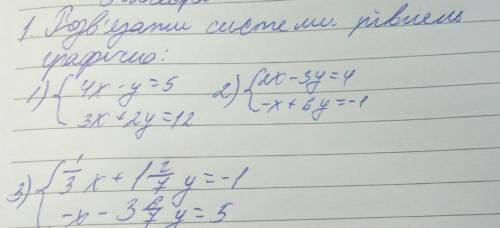 1. Розв'язати системи рівнень
графічно:
1) { 4x - y = 5
3x + 2y = 12
2) { 2x - 3y = 4
-x + 6y = -1
3) { 1/3 x + 1 2/7 y = -1
-x - 3 6/7 y = 5